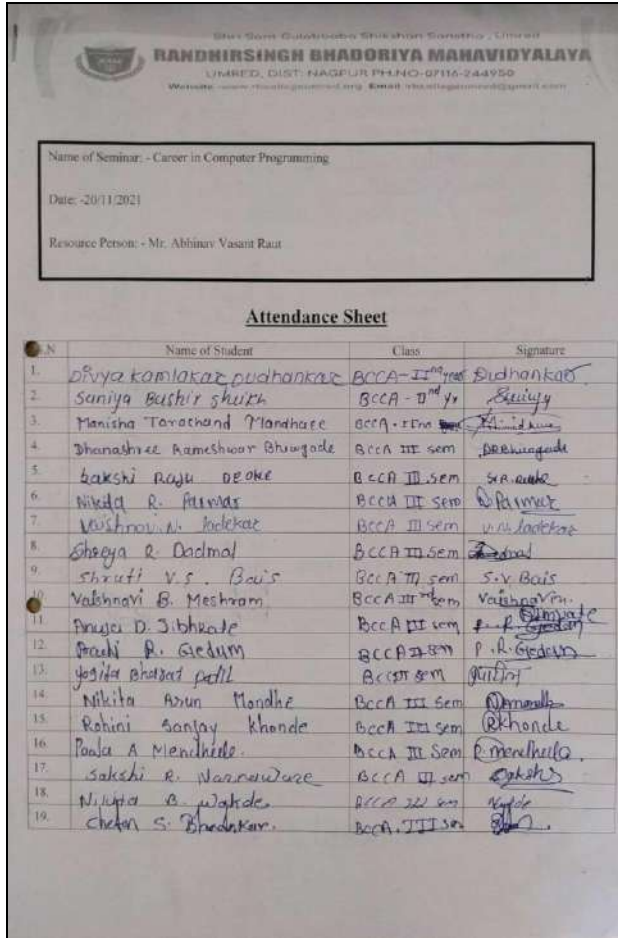 Shri Sant Gulabbaba Shikshan Sanstha, Umred
RANDHIRSINGH BHADORIYA MAHAVIDYALAYA
UMRED, DIST: NAGPUR PH.NO-07116-244950
Website Email
Name of Seminar: - Career in Computer Programming
Date: -20/11/2021
Resource Person: - Mr. Abhinav Vasant Raut
Attendance Sheet
S.N Name of Student Class Signature
1. Divya Kamlakar Dudhankar BCCA-IInd year Dudhankar
2. Saniya Bashir sheikh BCCA - IInd yr
3. Manisha Tarachand Mandhare BCCA
4. Dhanashree Rameshwar Bhuyade BCCA III sem
5. Sakshi Raju Deoke BCCA III sem
6. Nikita R. Parmar BCCA III sem Parmar
7. Vaishnavi N. ladekar BCCA III sem V.N. ladekar
8. Shreya R. Dadmal BCCA III sem
9. Shruti V.S. Bais BCCA III sem S.V. Bais
10. Vaishnavi B. Meshram BCCA III rd sem Vaishnavi
11. Anuja D. Jibhkate BCCA III sem
12. Prachi R. Gedam BCCA III sem P.R. Gedam
13. Yogita Patil BCCA III sem
14. Nikita Arun Mondhe BCCA III Sem
15. Rohini Sanjay Khonde BCCA III Sem RKhonde
16. Pooja A Mendhule. BCCA III Sem
17. Sakshi R. Narnaware BCCA III sem Sakshi
18. B. Wakde BCCA III sem
19. Chetan S. Bhednkar. BCCA. III sem